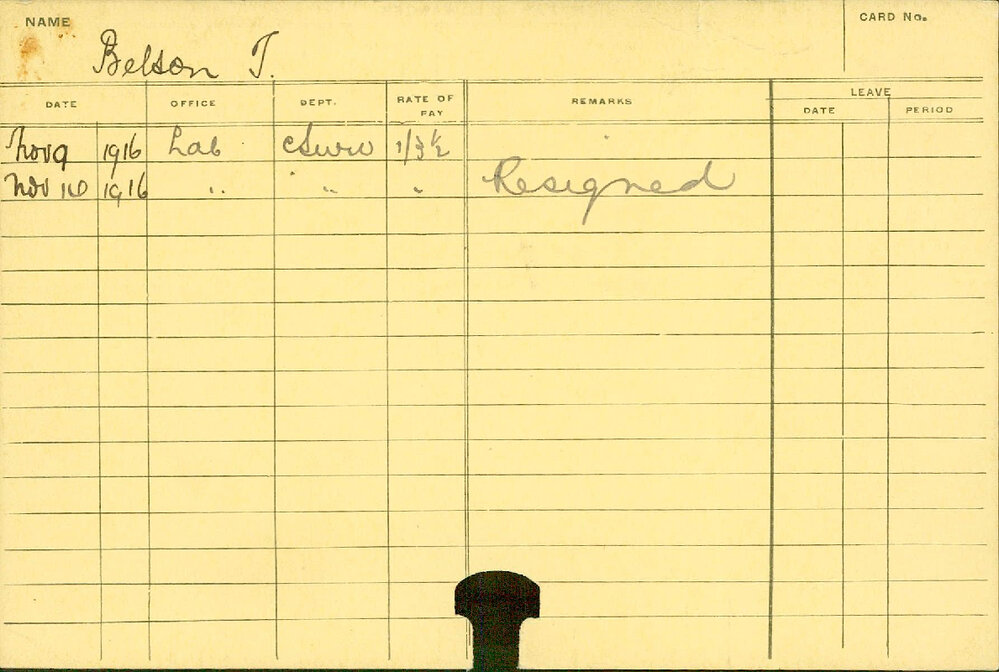 NAME
CARD No.
Belson T.
DATE OFFICE DEPT. RATE OF PAY REMARKS LEAVE
DATE PERIOD
Nov 9 1916 Lab 1/3½
Nov 10 1916 " " " Resigned